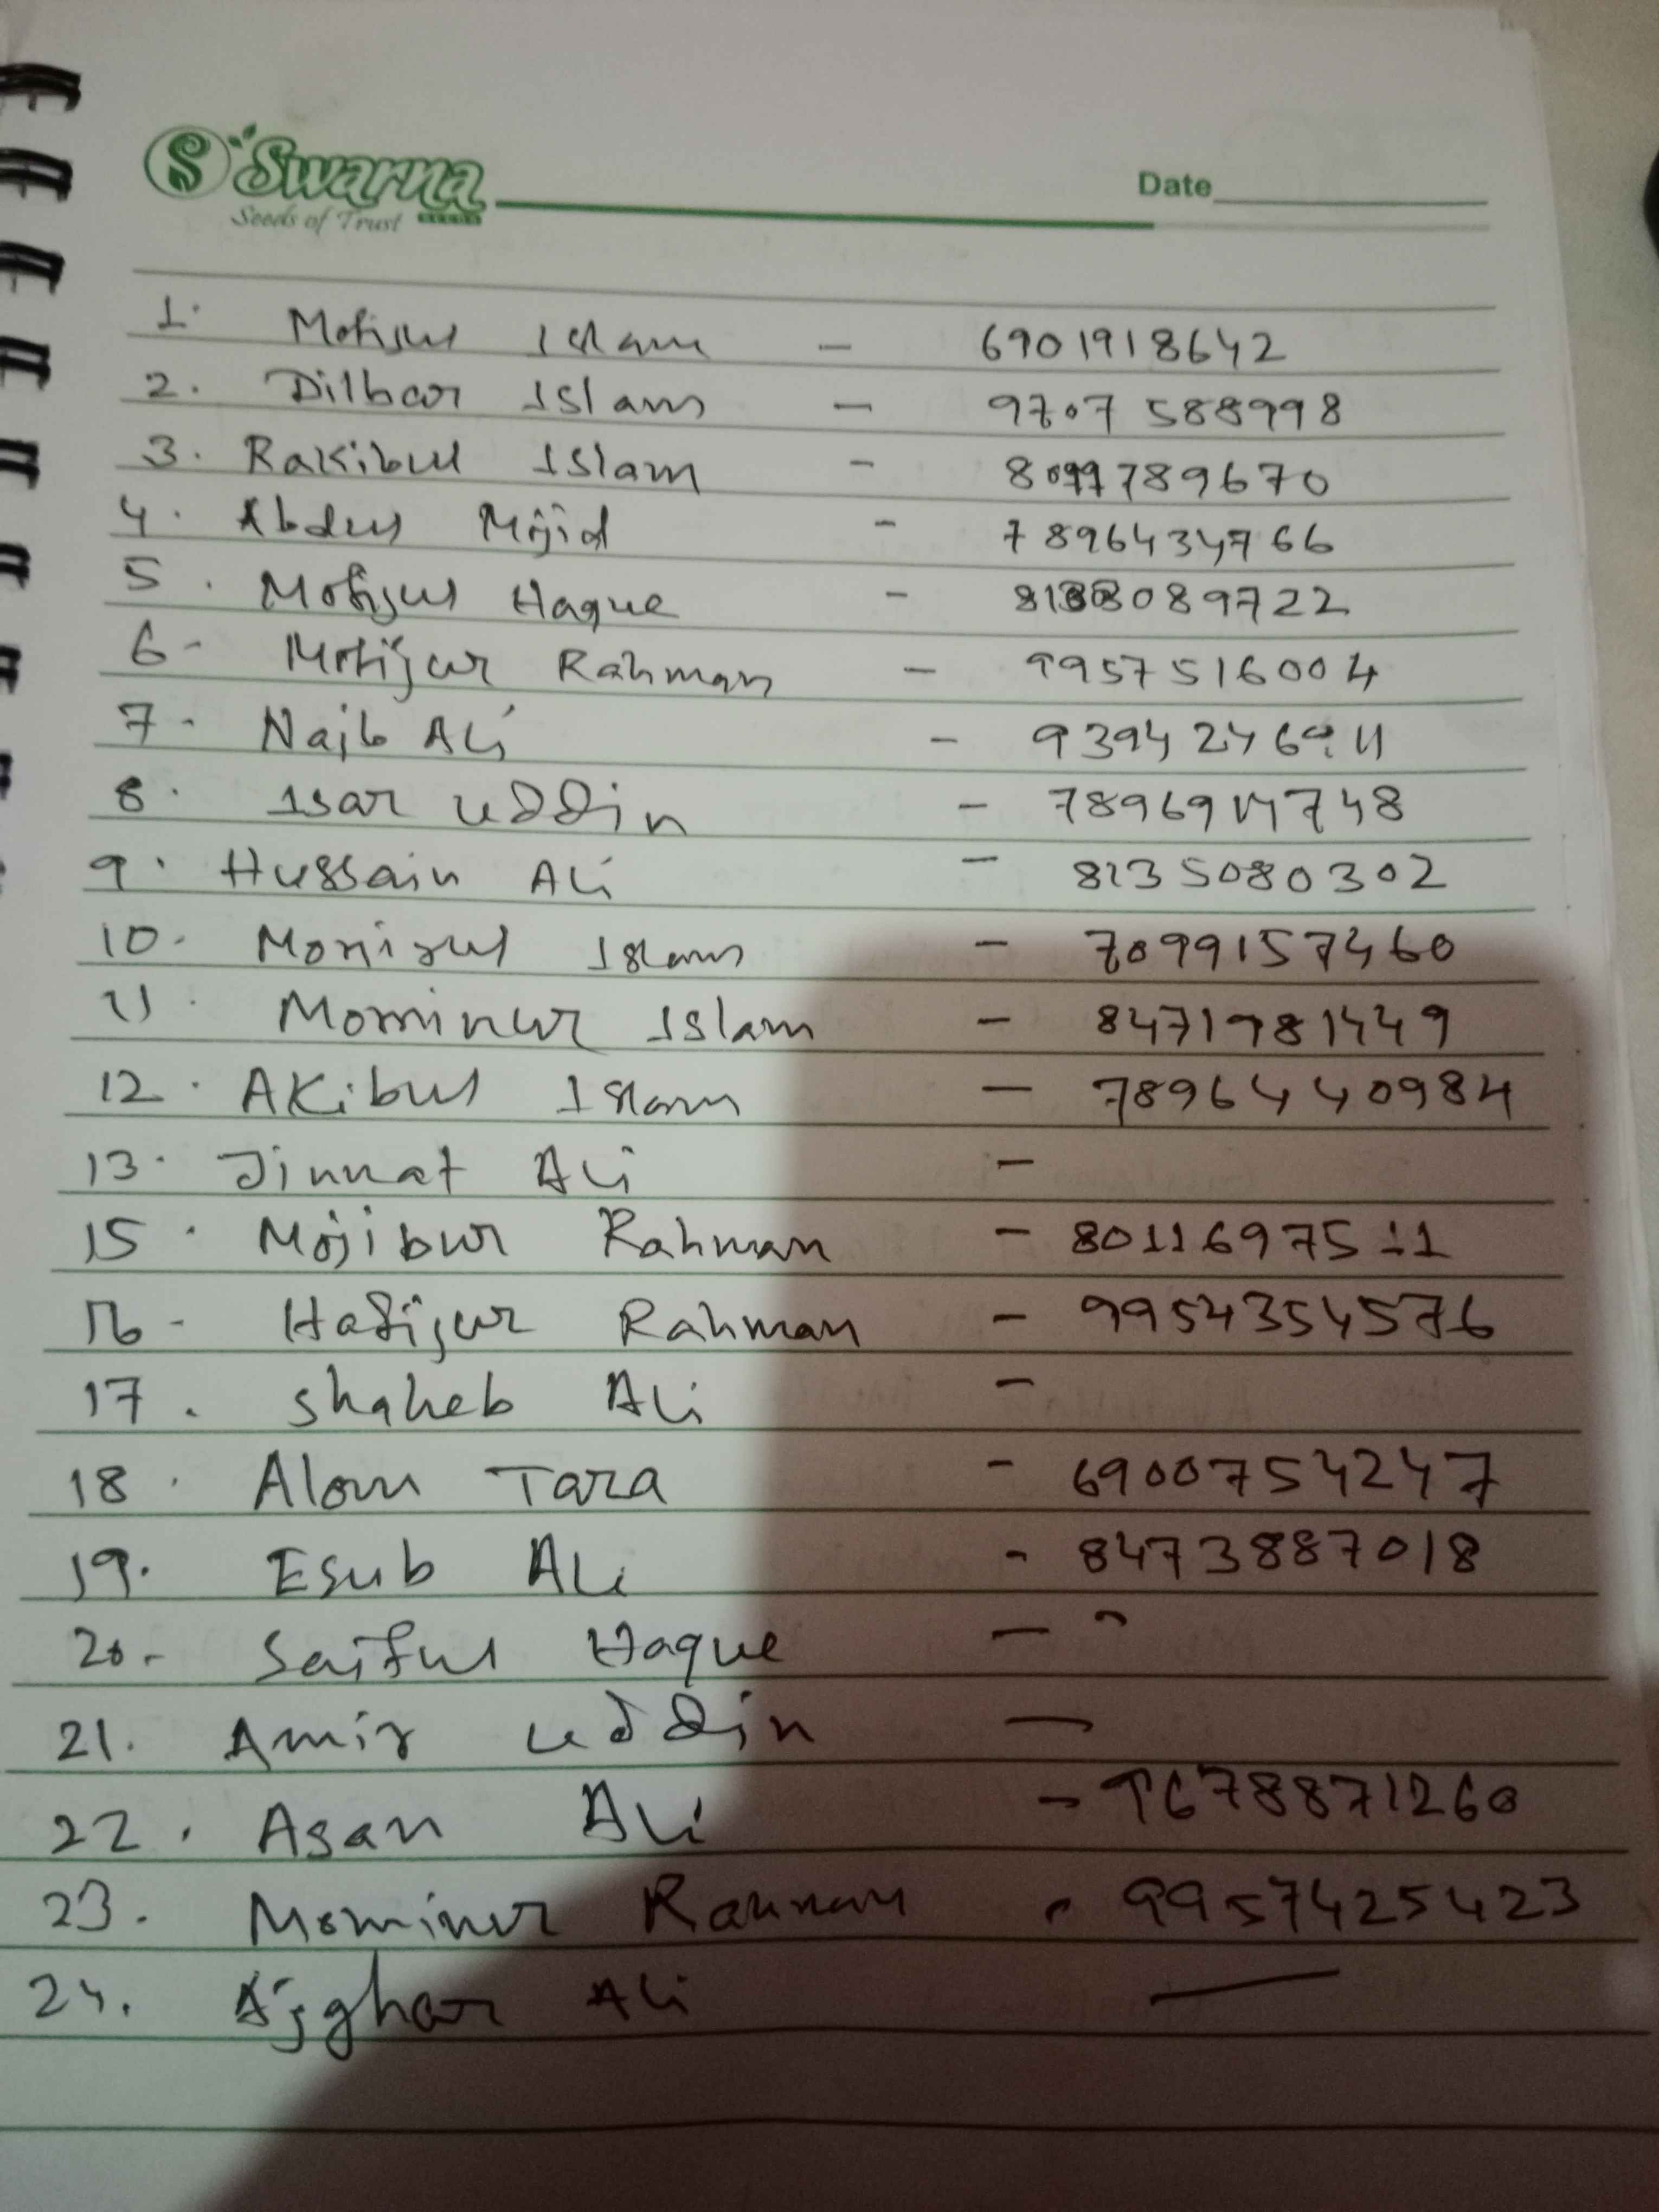 Swarna
Seeds of Trust SEEDS
Date
1. Mofijul Islam - 6901918642
2. Dilbar Islam - 9707588998
3. Rakibul Islam - 789670
4. Abdul Mojid - 7896434766
5. Mofijul Haque - 089722
6- Mofijur Rahman - 9957516004
7- Najb Ali - 939424
8. Isar uddin - 7896914748
9. Hussain Ali - 8135080302
10- Monirul Islam - 7099157460
11. Mominur Islam - 8471981449
12. Akibul Islam - 7896440984
13. Jinnat Ali -
15. Mojibur Rahman - 8011697511
16- Hafijur Rahman - 9954354576
17. Shaheb Ali -
18. Alom Tara - 6900754247
19. Esub Ali - 8473887018
20- Saiful Haque -
21. Amir uddin -
22. Asan Ali - 9678871260
23. Mominur Rahman - 9957425423
24. Ajghar Ali -